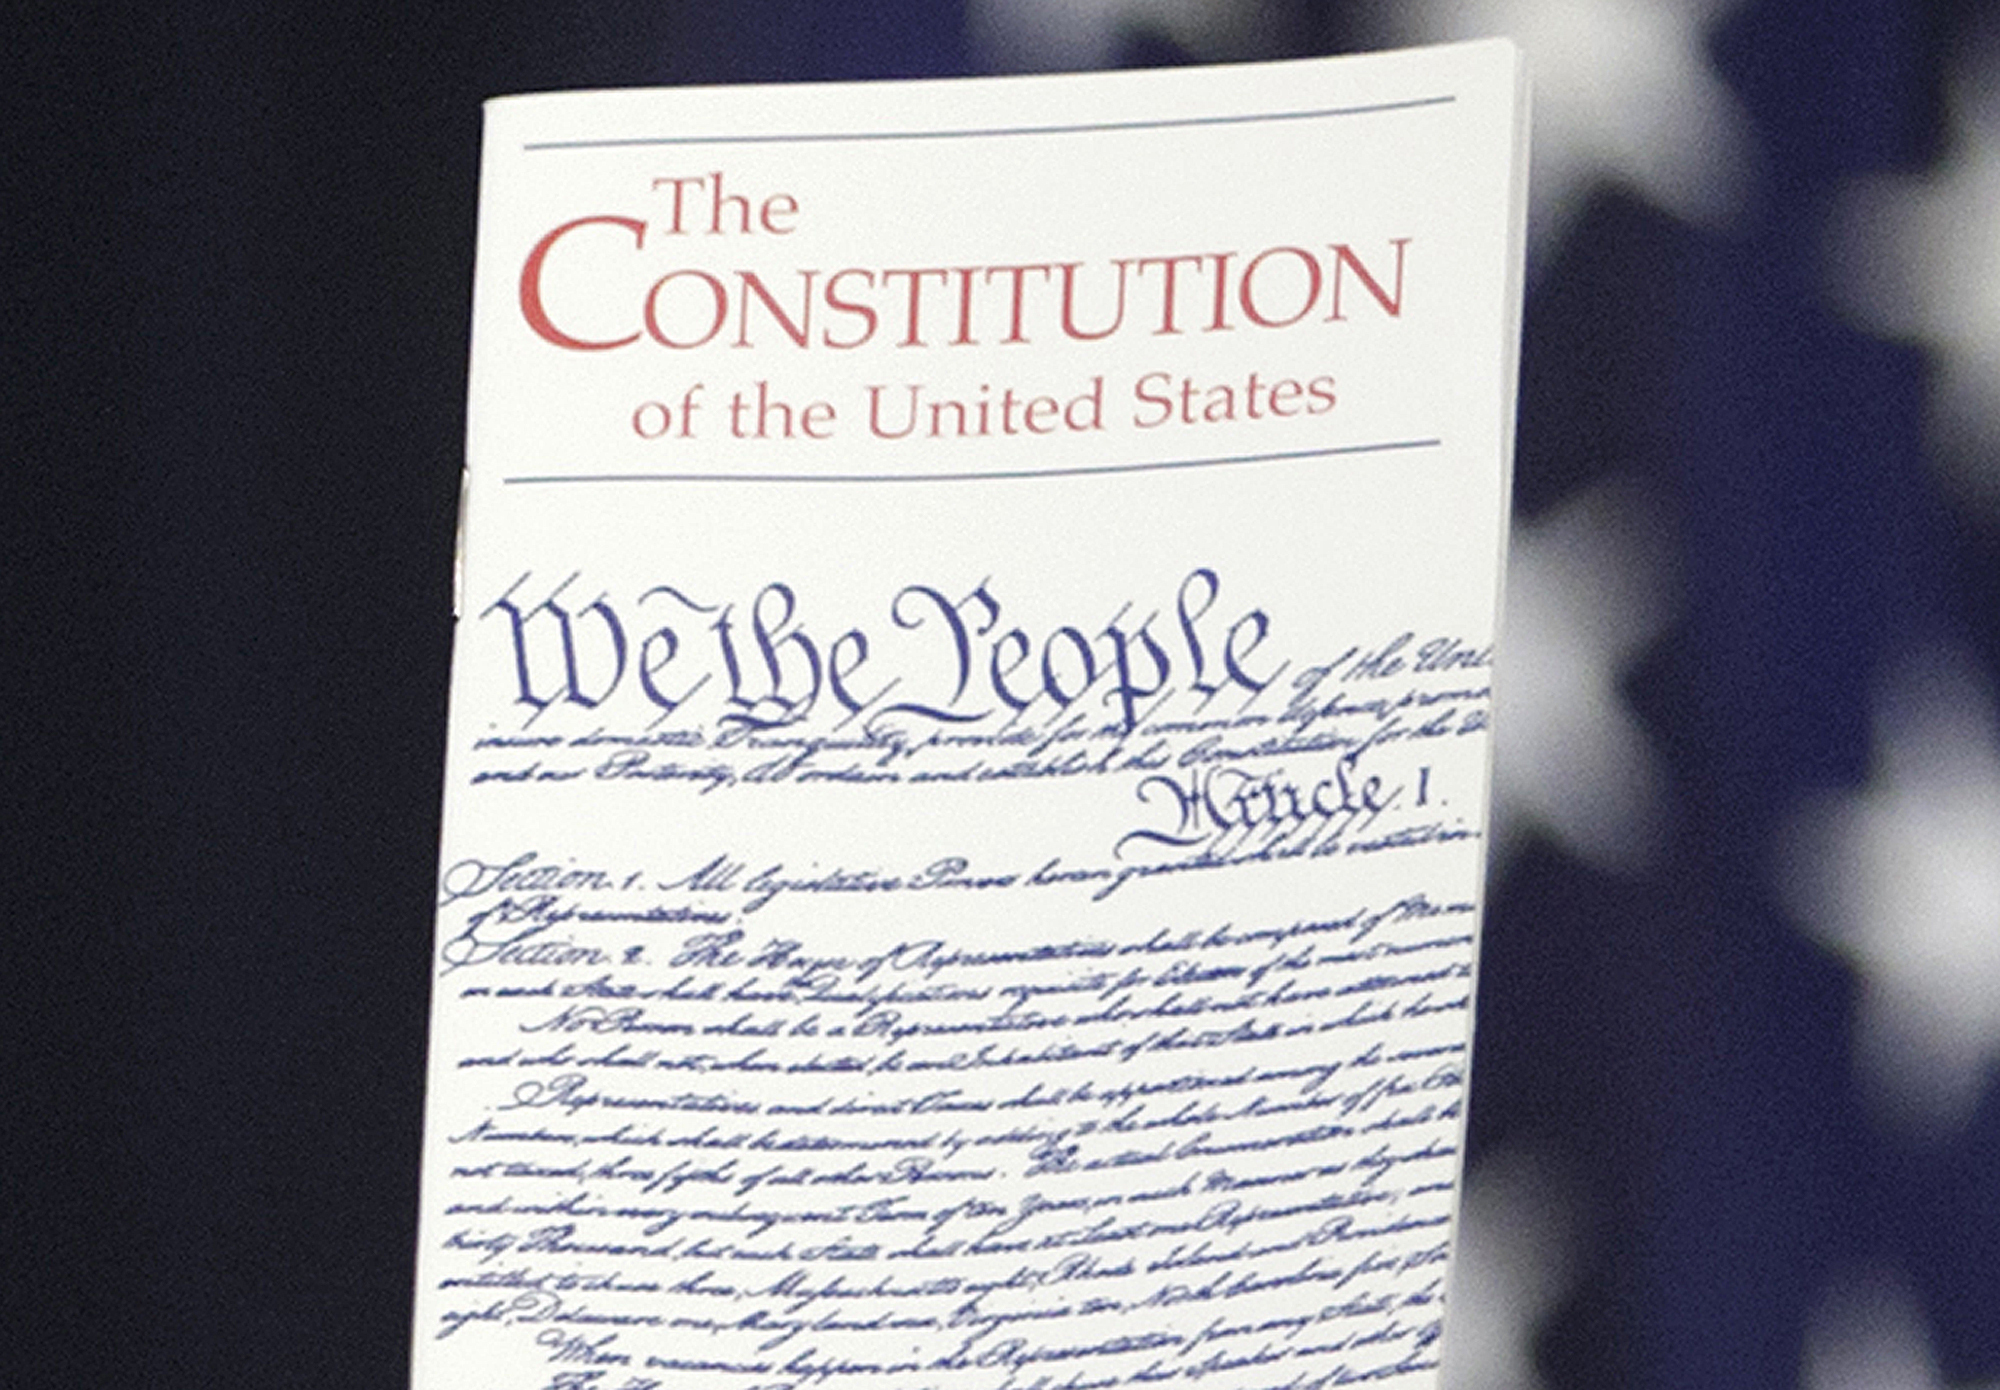 The
CONSTITUTION
of the United States
We the People of the Uni
insure domestic Tranquility, provide for the common defence, promo
and our Posterity, do ordain and establish this Constitution for the U
Article. I.
Section. 1. All legislative Powers herein granted shall be vested in
of Representatives.
Section. 2. The House of Representatives shall be composed of Mem
in each State shall have Qualifications requisite for Electors of the most numer
No Person shall be a Representative who shall not have attained to
and who shall not, when elected, be an Inhabitant of that State in which he sh
Representatives and direct Taxes shall be apportioned among the several
Numbers, which shall be determined by adding to the whole Number of free Per
not taxed, three fifths of all other Persons. The actual Enumeration shall be
and within every subsequent Term of ten Years, in such Manner as they shall
thirty Thousand, but each State shall have at Least one Representative; and
entitled to chuse three, Massachusetts eight, Rhode Island and Providence
eight, Delaware one, Maryland six, Virginia ten, North Carolina five, So
When vacancies happen in the Representation from any State, the